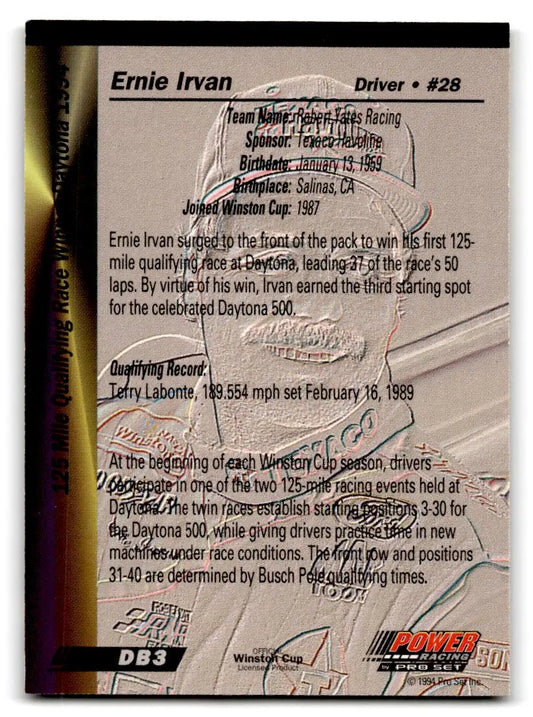 Ernie Irvan
Driver • #28
Team Name: Robert Yates Racing
Sponsor: Texaco Havoline
Birthdate: January 13, 1959
Birthplace: Salinas, CA
Joined Winston Cup: 1987
Ernie Irvan surged to the front of the pack to win his first 125-
mile qualifying race at Daytona, leading 37 of the race's 50
laps. By virtue of his win, Irvan earned the third starting spot
for the celebrated Daytona 500.
Qualifying Record:
Terry Labonte, 189.554 mph set February 16, 1989
At the beginning of each Winston Cup season, drivers
participate in one of the two 125-mile racing events held at
Daytona. The twin races establish starting positions 3-30 for
the Daytona 500, while giving drivers practice time in new
machines under race conditions. The front row and positions
31-40 are determined by Busch Pole qualifying times.
125 Mile Qualifying Race Daytona 1994
TEXACO
Winston
DB3
OFFICIAL
Winston Cup
Licensed Product
POWER
RACING
by PRO SET
© 1994 Pro Set Inc.